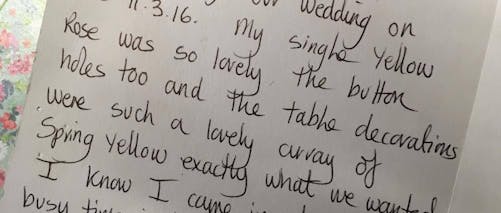 Wedding on
11.3.16. My singhe Yellow
Rose was so lovely the button
holes too and the tabhe decorations
were such a lovely array of
Spring Yellow exactly what we wanted
I know I came
busy